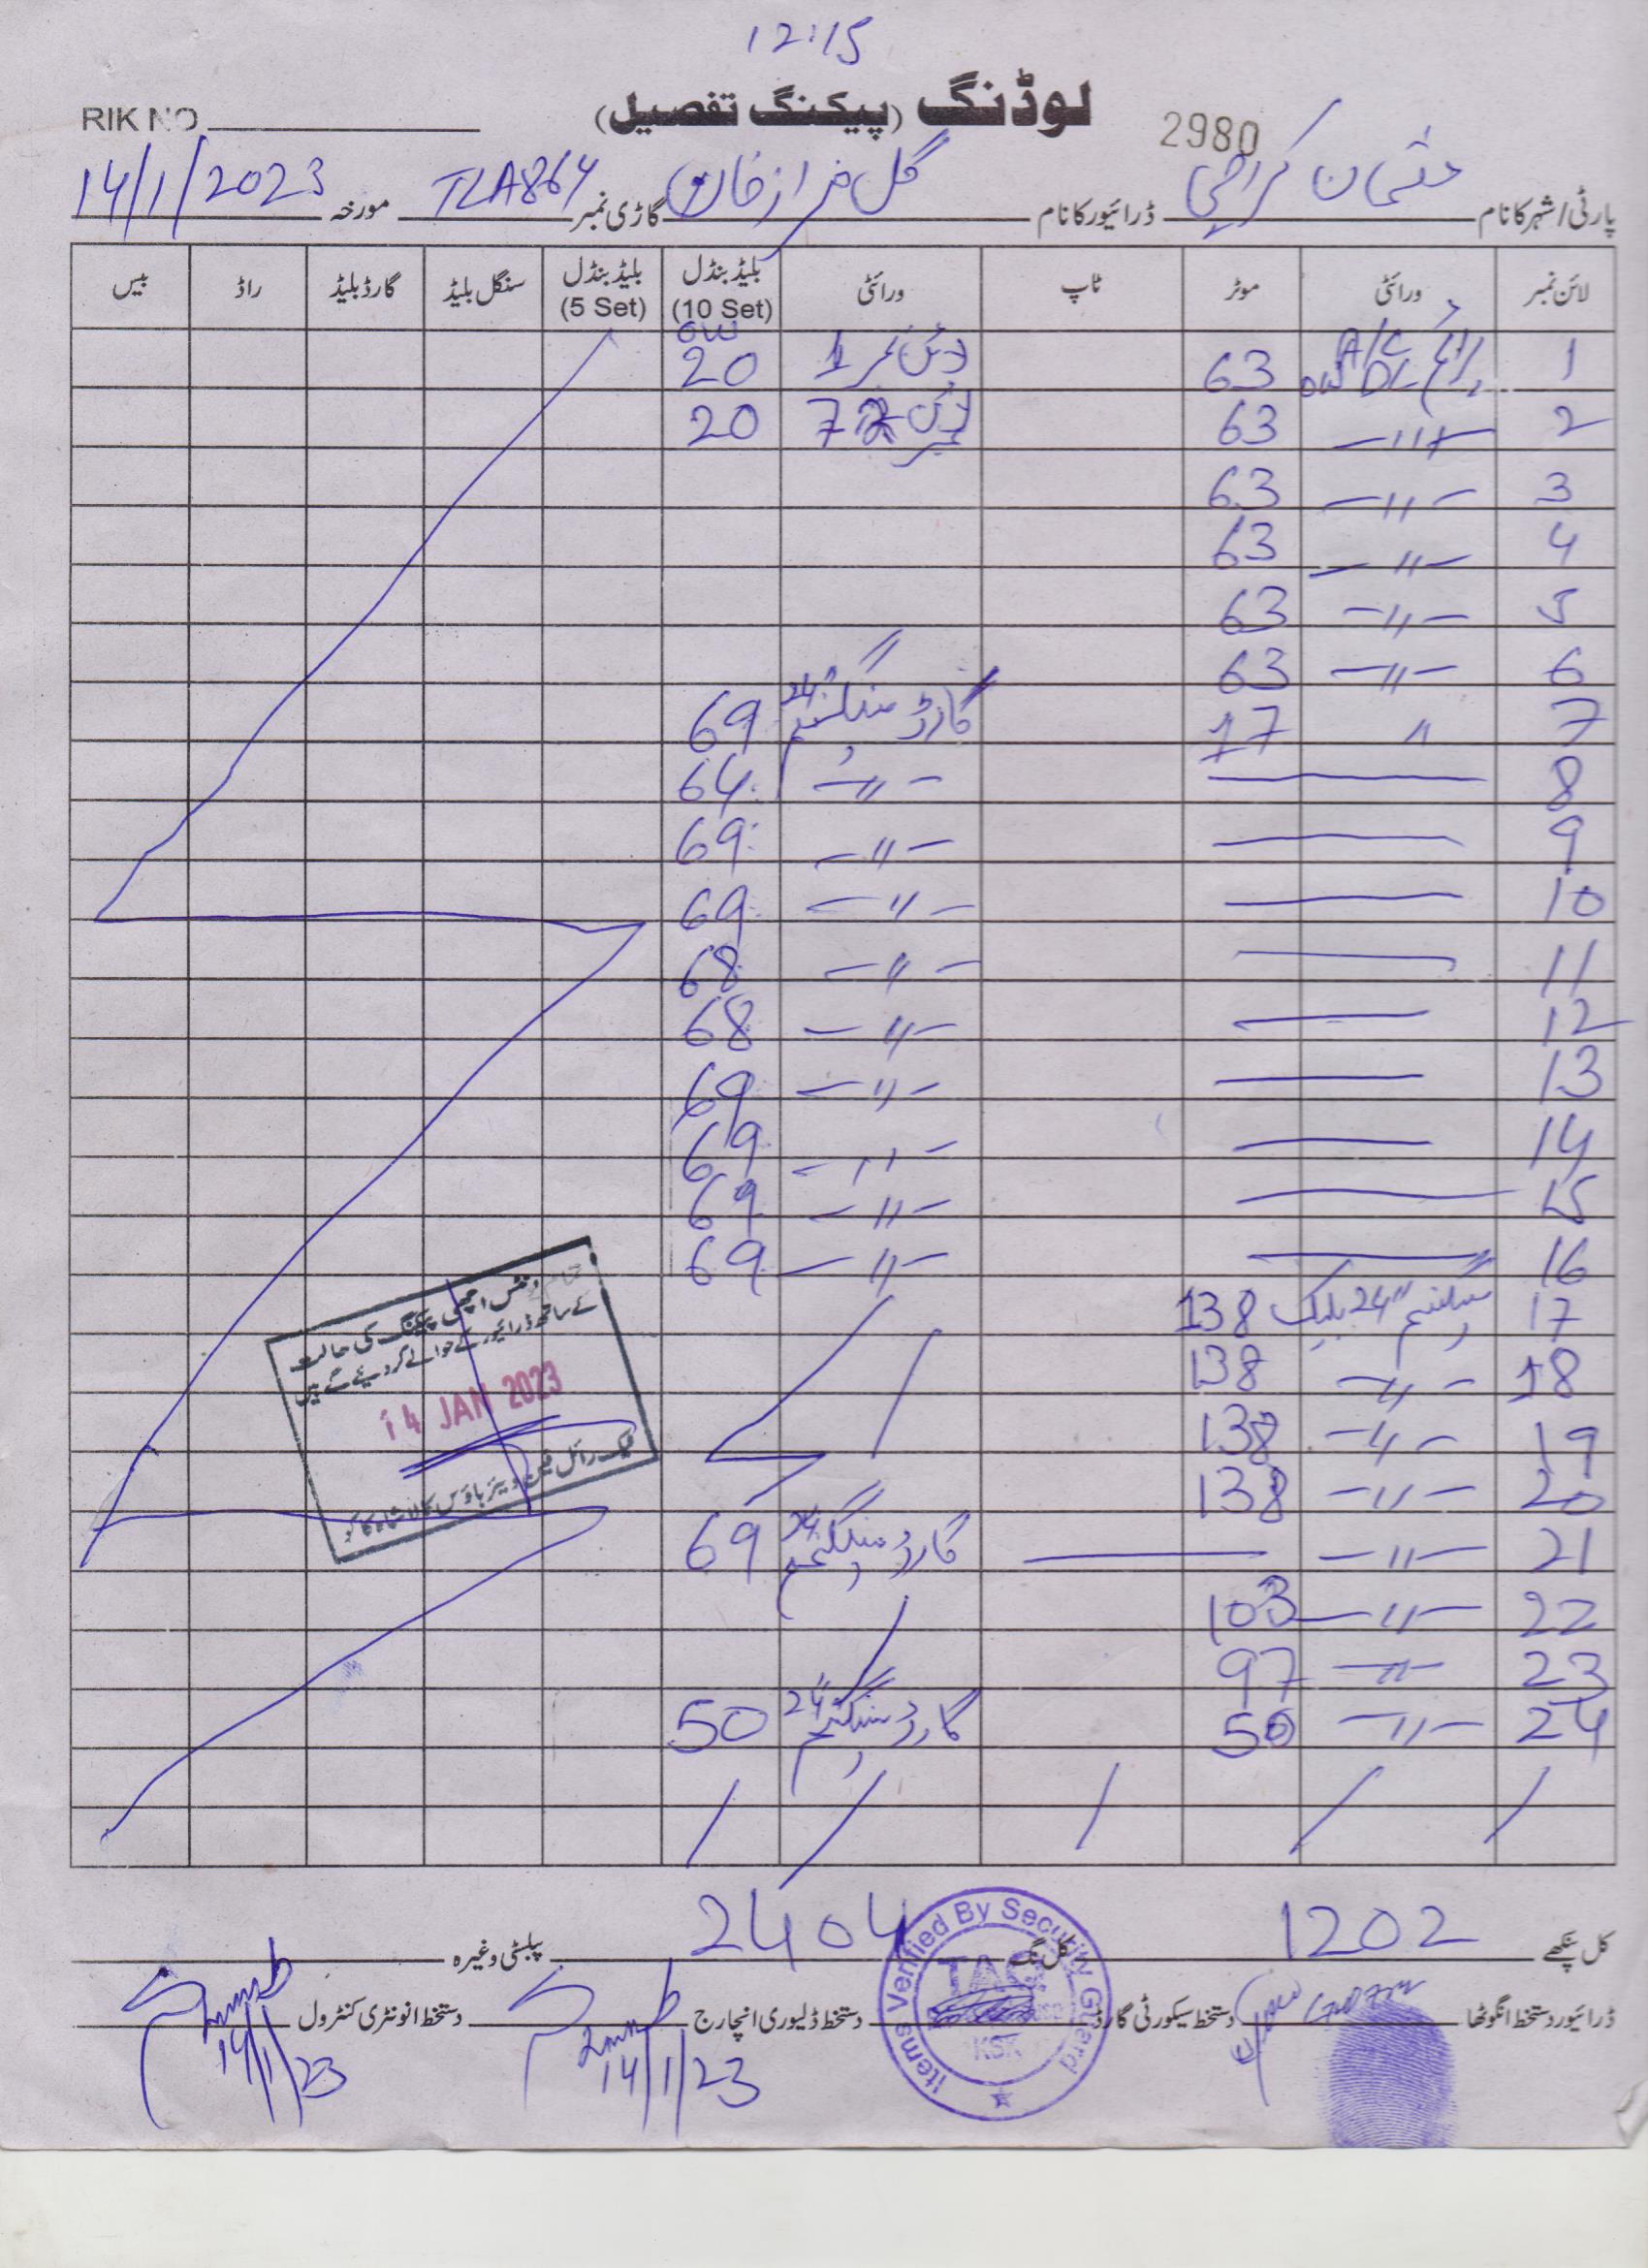 12:15
لوڈنگ (پیکنگ تفصیل)
RIK NO
2980
پارٹی/شہر کا نام عثمان کراچی ڈرائیور کا نام گل فراز خان گاڑی نمبر TLA864 مورخہ 14/1/2023
لائن نمبر ورائٹی موٹر ٹاپ ورائٹی بلیڈ بنڈل (10 Set) بلیڈ بنڈل (5 Set) سنگل بلیڈ گارڈ بلیڈ راڈ بیس
1 A/C DC 63 نمبر 1 20
2 —〃— 63 نمبر 7 20
3 —〃— 63
4 —〃— 63
5 —〃— 63
6 —〃— 63
7 〃 17 گارڈ 24" 69
8 — 64 —〃—
9 — 69 —〃—
10 — 69 —〃—
11 — 68 —〃—
12 — 68 —〃—
13 — 69 —〃—
14 — 69 —〃—
15 — 69 —〃—
16 — 69 —〃—
17 24" بلیک 138
18 —〃— 138
19 —〃— 138
20 —〃— 138
21 —〃— — گارڈ 24" 69
22 —〃— 103
23 —〃— 97
24 —〃— 50 گارڈ 24" 50
اچھی پیکنگ کی حالت
کے ساتھ ڈرائیور کے حوالے کر دیئے گئے ہیں
14 JAN 2023
کل پنکھے 1202 کل نگ 2404 پبلسٹی وغیرہ
ڈرائیور دستخط انگوٹھا دستخط سیکورٹی گارڈ دستخط ڈلیوری انچارج دستخط انونٹری کنٹرول
14/1/23
14/1/23
Items Verified By Security Guard
KSK